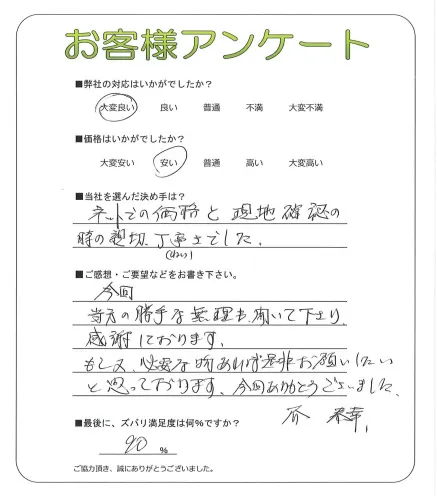 お客様アンケート
■弊社の対応はいかがでしたか?
大変良い 良い 普通 不満 大変不満
■価格はいかがでしたか?
大変安い 安い 普通 高い 大変高い
■当社を選んだ決め手は?
ネットでの価格と現地確認の
時の親切、丁寧さでした。
■ご感想・ご要望などをお書き下さい。
今回
当方の勝手な無理も聞いて下さり、
感謝しております。
もし又、必要な時あれば是非お願いしたい
と思っております。今回ありがとうございました。
■最後に、ズバリ満足度は何%ですか?
90 %
ご協力頂き、誠にありがとうございました。